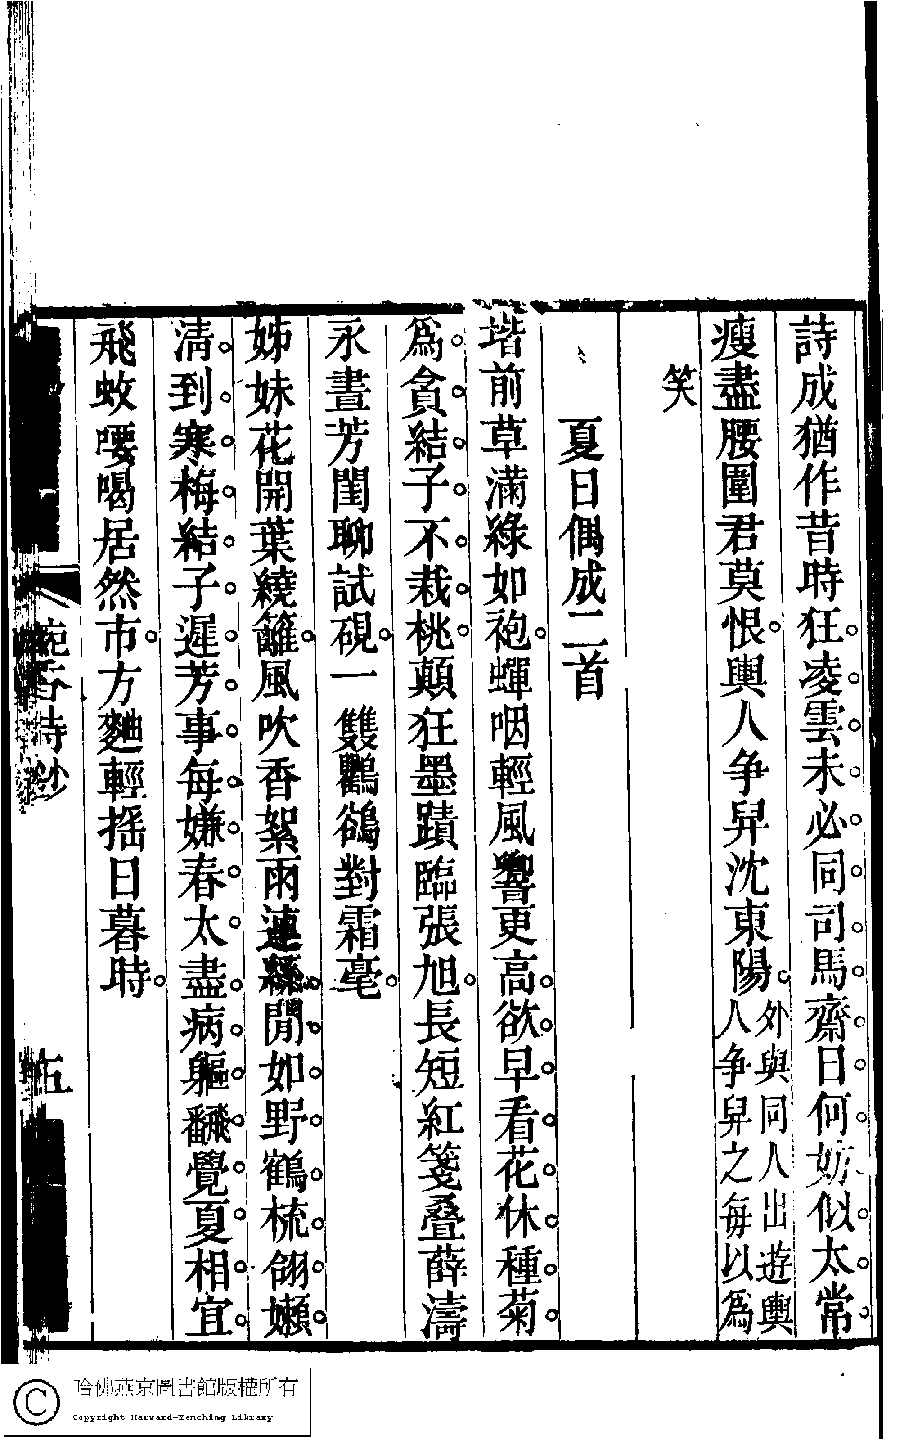 詩成猶作昔時狂。凌。雲。未。必。同。司。馬。齋。日。何。妨。似。太。常。
瘦盡腰圍君莫恨。輿人争舁沈東陽。外與同人出遊輿
人争舁之每以爲
笑
夏日偶成二首
堦前草滿綠如袍。蟬咽輕風響更高。欲。早。看。花。休。種。菊。
爲。貪。結。子。不。栽。桃。顛狂墨蹟臨張旭。長短紅箋叠薛濤
永晝芳閨聊試硯。一雙鸜鵒對霜毫。
姊妹花開葉繞籬。風吹香絮雨連緜。閒。如。野。鶴。梳。翎。嬾。
清。到。寒。梅。結。子。遲。芳。事。每。嫌。春。太。盡。病。軀。翻。覺。夏。相。宜。
飛蚊嘤喝居然市。方麯輕搖日暮時。
香詩鈔
五
哈佛燕京圖書館版權所有
Copyright Harvard-Yenching Library